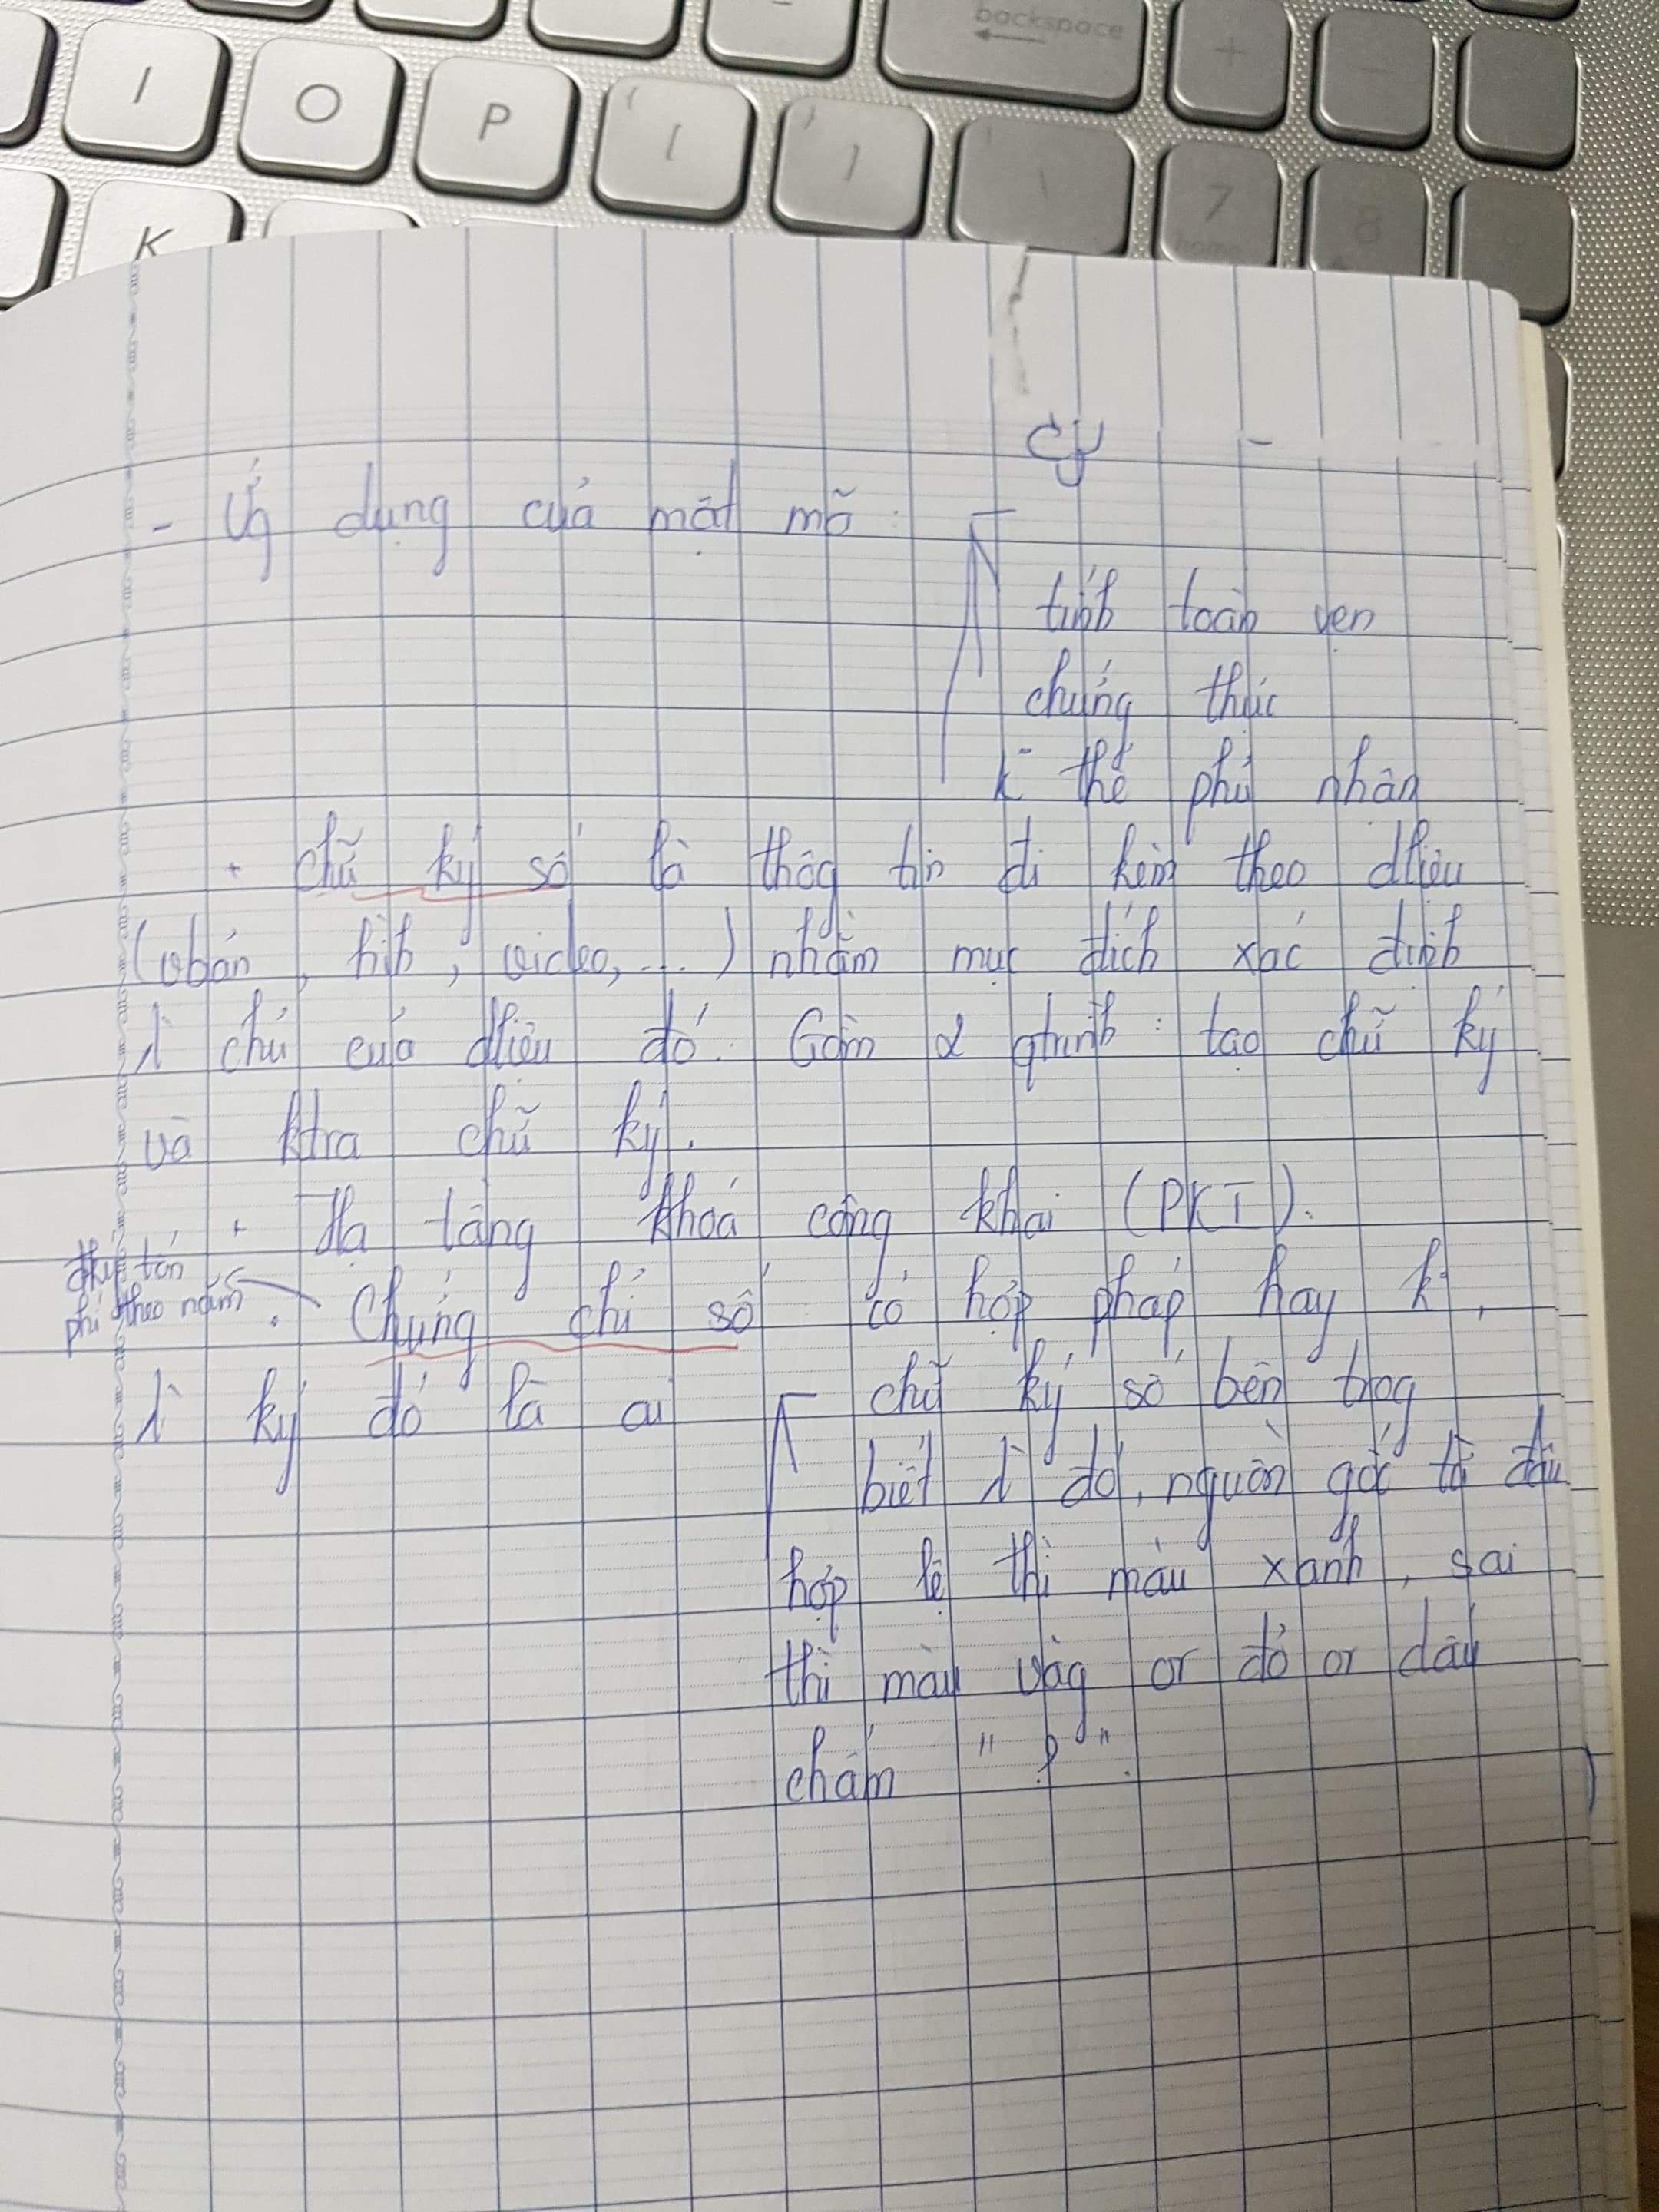 backspace
I O P { [ } ] \ 7 8
home
K
- Ứg dụng của mật mã :
tính toàn vẹn
chứng thực
k thể phủ nhận
+ chữ ký số là thôg tin đi kèm theo dliệu
(vbản, hìh, video, ...) nhằm mục đích xác định
chủ của dliệu đó. Gồm 2 qtrình : tạo chữ ký
và ktra chữ ký.
+ Hạ tầng khoá công khai (PKI).
đký tốn
phí theo năm
. Chứng chỉ số : có hợp pháp hay k,
ký đó là ai
chữ ký số bên trog
biết đó, nguồn gốc từ đâu
hợp lệ thì màu xanh, sai
thì màu vàg or đỏ or dấu
chấm "?".